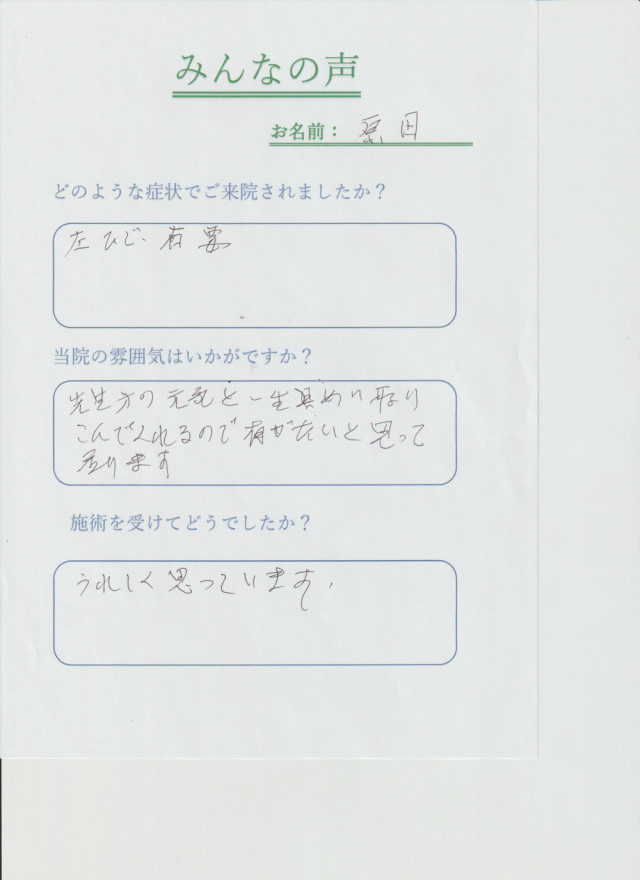 みんなの声
お名前：原田
どのような症状でご来院されましたか？
左ひじ、右
当院の雰囲気はいかがですか？
先生方の元気と一生懸めに取り
こんでくれるので有がたいと思って
居ります
施術を受けてどうでしたか？
うれしく思っています、